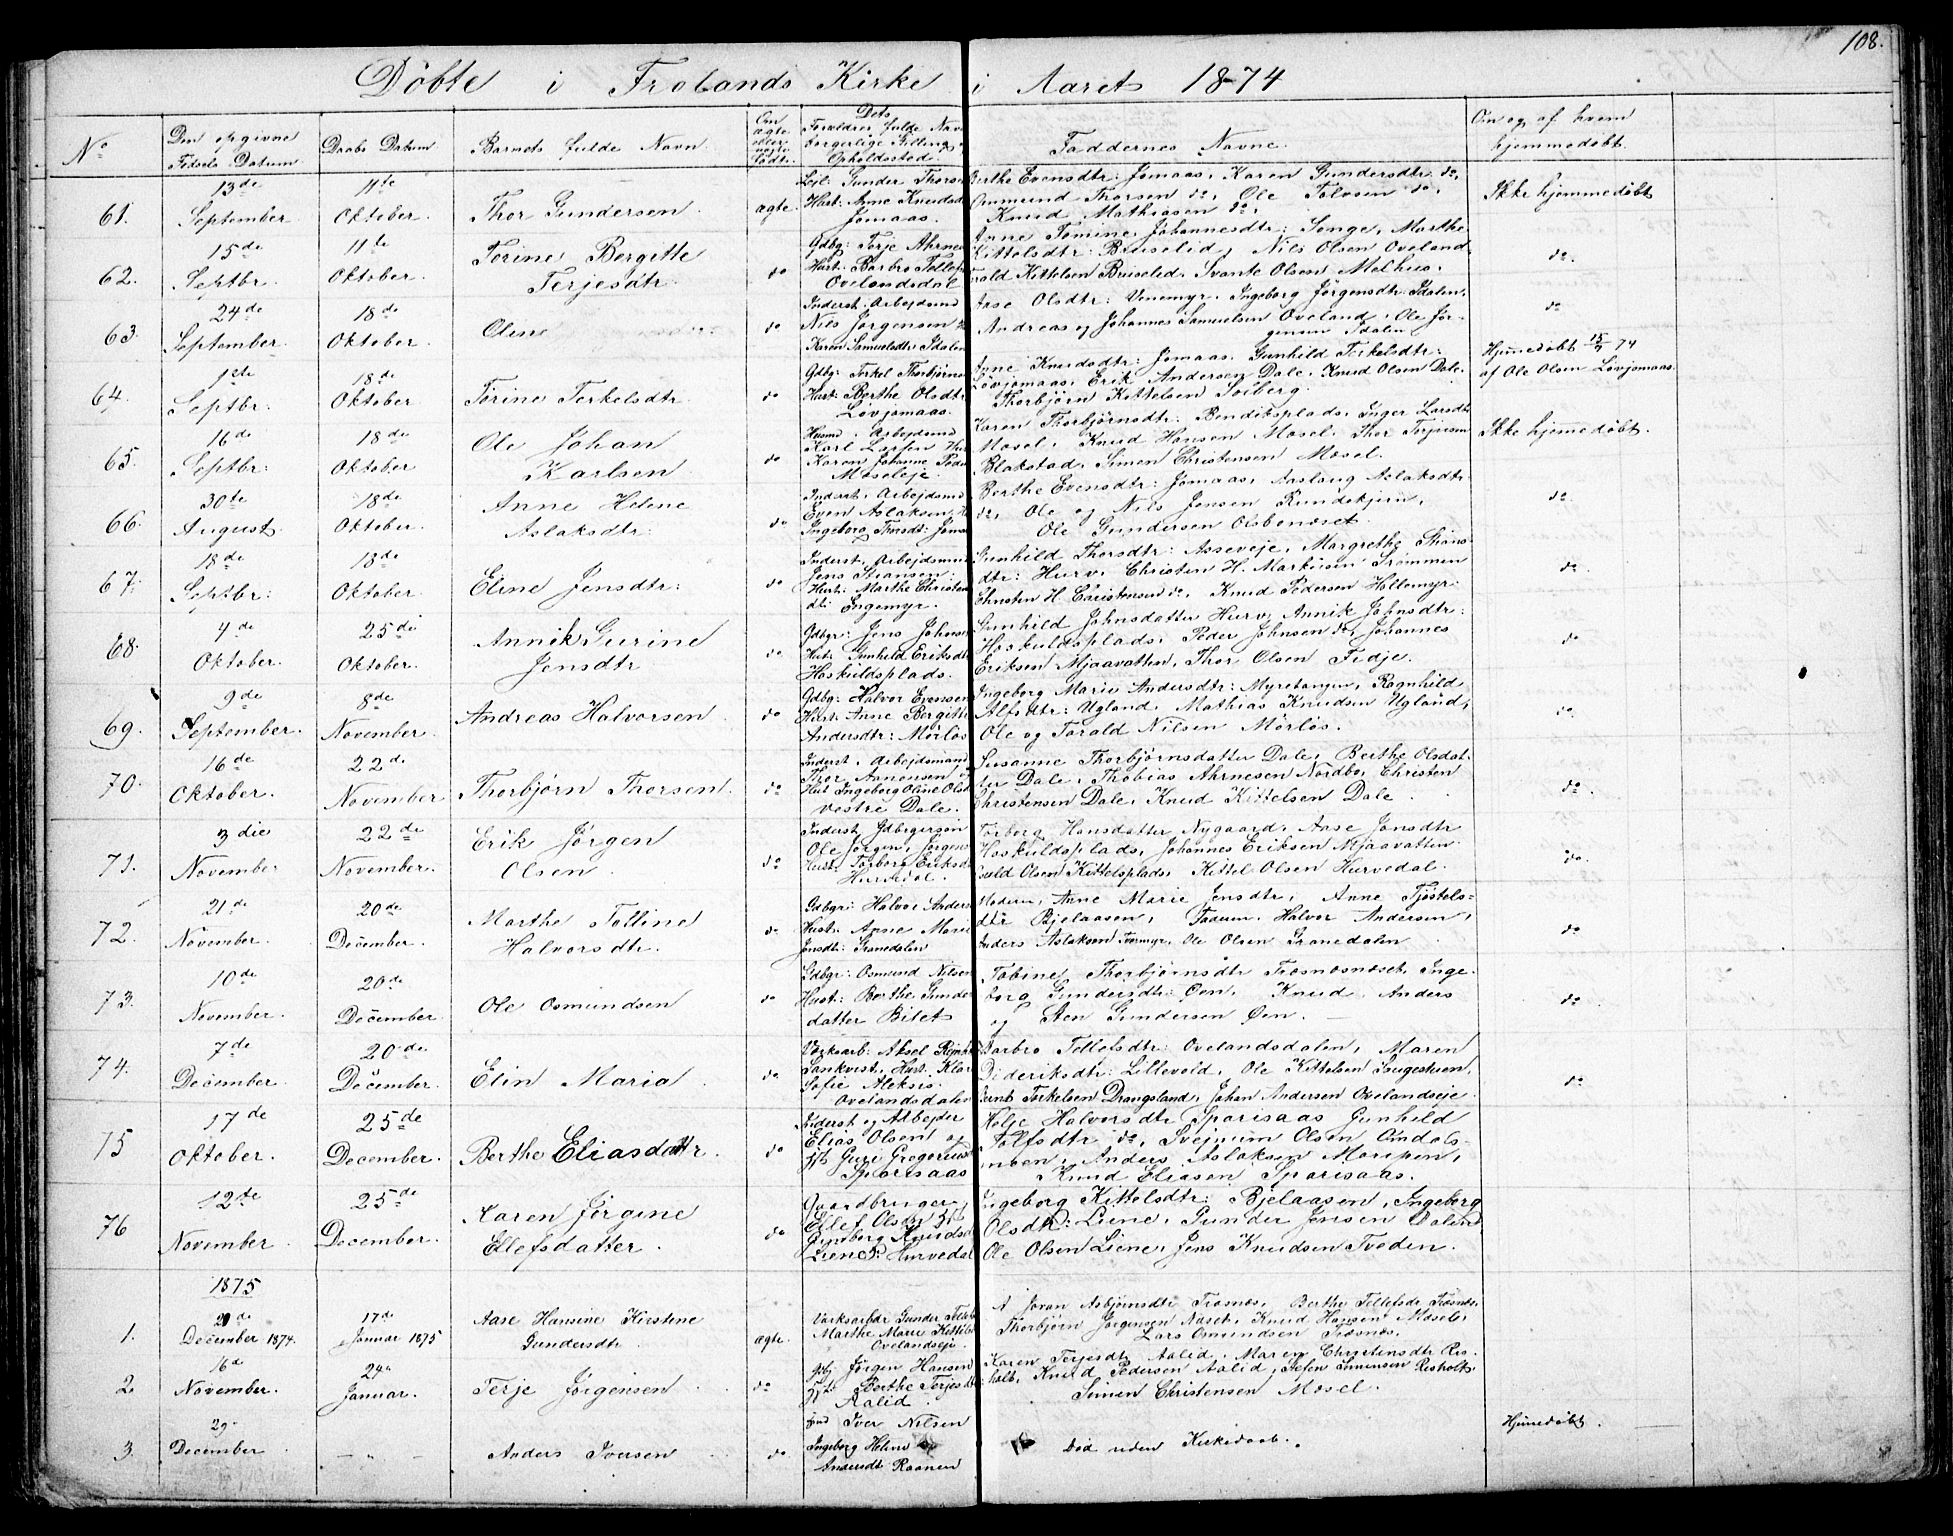 108.
Döbte i Frolands Kirke i Aaret 1874
No
Den opgivne Fødsels Datum
Daabs Datum
Barnets fulde Navn
Om ægte eller uægte født.
Dets Forældres fulde Navn borgerlige Stilling Opholdssted.
Faddernes Navne.
Om og af hvem hjemmedøbt.
61. 13de September 11te Oktober. Thor Gundersen ægte.
Lejl: Gunder Thorsen
Hust: Anne Knudsd
Jomaas.
Berthe Evensdtr: Jomaas, Karen Gundersdtr do,
Ommund Thorsen do, Ole Tolvsen do,
Knud Mathiasen do,
Ikke hjemmedøbt
62. 15de Septbr. 11te Oktober. Torine Bergitte Terjesdtr. do
Gdbg: Terje Ahrne
Hust: Barbro Tellefs
Ovelandsdal
Anne Tomine Johannesdtr: Songe, Marthe
Kittelsdtr: Buiselid, Nils Olsen Oveland
Kittelsen Buiselid, Svante Olsen Melhus.
do.
63. 24de September. 18de Oktober. Oline do
Inderst, Arbejdsmd
Nils Jørgensen
Karen Samuelsdtr Idalen
Aase Olsdtr: Venemyr, Ingeborg Jørgensdtr Idalen,
Andreas og Johannes Samuelsen Oveland, Ole Jør-
gensen Idalen
do
64. 1ste Septbr: 18de Oktober Torine Terkelsdtr do
Gdbg: Terkel Thorbjørns
Hust: Berthe Olsdtr
Løvjomaas.
Anne Knudsdtr: Jomaas. Gunhild Terkelsdtr:
Løvjomaas, Erik Andersen Dale, Knud Olsen Dale.
Thorbjørn Kittelsen Solberg.
Hjemmedøbt 15/9 74
af Ole Olsen Løvjomaas.
65. 16de Septbr: 18de Oktober Ole Johan Karlsen do
Husmd, Arbejdsmd
Karl Larsen
Karen Johanne Peder
Moseleje.
Karen Thorbjørnsdtr: Benditsplads, Inger Larsdtr
Mosel, Knud Hansen Mosel, Thor Terjesen
Blakstad, Simen Christensen Mosel.
Ikke hjemmedøbt.
66. 30te August. 18de Oktober. Anne Helene Aslaksdtr: do
Inderst, Arbejdsmd
Even Aslaksen
Ingeborg Thorsdt: Joma
Berthe Evensdtr: Jomaas, Aaslaug Aslaksdtr
do, Ole og Nils Jensen Rundekjern,
Ole Gundersen Osbenæset.
do.
67. 18de Septbr: 18de Oktober. Eline Jensdtr: do
Inderst, Arbejdsmd
Jens Stiansen
Hust: Marthe Christens
dt: Engemyr.
Gunhild Thorsdtr: Asseveje, Margrethe Stians
dtr: Hurv, Christen H. Markusen Strømmen
Christen H. Christensen do, Knud Pedersen Hollemyr.
do.
68. 4de Oktober. 25de Oktober. Annik Gurine Jensdtr do.
Gdbgr: Jens Johns
Hst: Gunhild Eriksdt
Haskuldsplads.
Gunhild Johnsdatter Hurv, Annik Johnsdtr:
Haskuldsplads, Peder Johnsen do, Johannes
Eriksen Mjaavatten, Thor Olsen Fidje.
do
69. 9de September. 8de November. Andreas Halvorsen do
Gdbg: Halvor Evensen
Hust: Anne Bergitte
Andersdtr: Mørløs
Ingeborg Marie Andersdtr: Myretangen, Ragnhild
Alfsdtr: Ugland, Mathias Knudsen Ugland,
Ole og Torald Nilsen Mørløs.
do.
70. 16de Oktober. 22de November Thorbjørn Thorsen. do
Inderst, Arbejdsmand
Thor Aanonsen
Hst Ingeborg Oline Olsd
Vestre Dale.
Susanne Thorbjørnsdatter Dale, Berthe Olsdat-
ter Dale, Thobias Ahrnesen Nordbø, Christen
Christensen Dale, Knud Kittelsen Dale
do.
71. 3die November 22de November. Erik Jørgen Olsen do
Inderst, Gdbrgersøn
Ole Jørgen Jørgens
Hust: Torborg Eriksd
Hurvedal.
Torborg Hansdatter Nygaard, Aase Jonsdtr
Haskuldsplads, Johannes Eriksen Mjaavatten
Olsen Kittelsplads, Kittel Olsen Hurvedal.
do.
72. 21de November. 20de December. Marthe Tolline Halvorsdtr. do
Gdbgr: Halvor Anders
Hust: Anne Marie
Jensdtr: Granedalen
Modern, Anne Marie Jensdtr, Anne Tjøstels-
dtr Bjelaasen, Fadern, Halvor Andersen,
Anders Aslaksen Furmyr, Ole Olsen Granedalen
do
73. 10de November. 20de December Ole Osmundsen do
Gdbgr: Osmund Nilsen
Hust: Berthe Gunder
datter Bilet
Tobine Thorbjørnsdtr Træsnæsnæset, Inge-
borg Gundersdtr: Øen, Knud, Anders
og Sten Gundersen Øen.
do.
74. 7de December 20de December. Elin Maria do.
Værksarb: Aksel
Lankvist, Hust: Klar
Sofie Aleksis.
Ovelandsdalen
Barbro Tellefsdtr: Ovelandsdalen, Maren
Dideriksdtr: Lillevold, Ole Kittelsen Saugestuen,
Bernt Terkelsen Drangsland, Johan Andersen Ovelandseje.
do
75 17de Oktober. 25de December. Berthe Eliasdattr. do
Inderst og Arbejder
Elias Olsen og
Guri Gregorius
Sparisaas
Helje Halvorsdtr Sparisaas Gunhild
do, Svejnum Olsen Omdals-
moen, Anders Aslaksen Moripen,
Knud Eliasen Sparisaas.
76 12te November. 25de December. Karen Jørgine Ellefsdatter. do
Gaardbruger
Ellef Olsen
Ginborg Knudsd
Liene: Hurvedal
Ingeborg Kittelsdtr: Bjelaasen, Ingeborg
Olsdtr: Liene, Gunder Jensen Dalen
Ole Olsen Liene, Jens Knudsen Tveden.
1875
1. December 1874. 17de Januar 1875 Aase Hansine Kirstine Gundersdtr ægte.
Værksarbdr Gunder
Marthe Marie Kittels
Ovelandseje.
Joran Asbjørnsdtr Træsnæs, Berthe Tellefsdt Træsnæs,
Thorbjørn Jørgensen Næset, Knud Hansen Mosel,
Lars Osmundsen Træsnæs.
2. 16de November. 24de Januar. Terje Jørgensen do
Jørgen Hansen
Berthe Terjesdtr
Aalid.
Karen Terjesdtr Aalid, Maren Christensdtr Ris-
holt, Knud Pedersen Aalid, Stefen Simensen Risholt
Simen Christensen Mosel.
3. 29 December - " - Anders Iversen do
Iver Nilsen
Ingeborg Helene
Andersdt Raanen
Død uden Kirkedaab.
Hjemmedøbt.